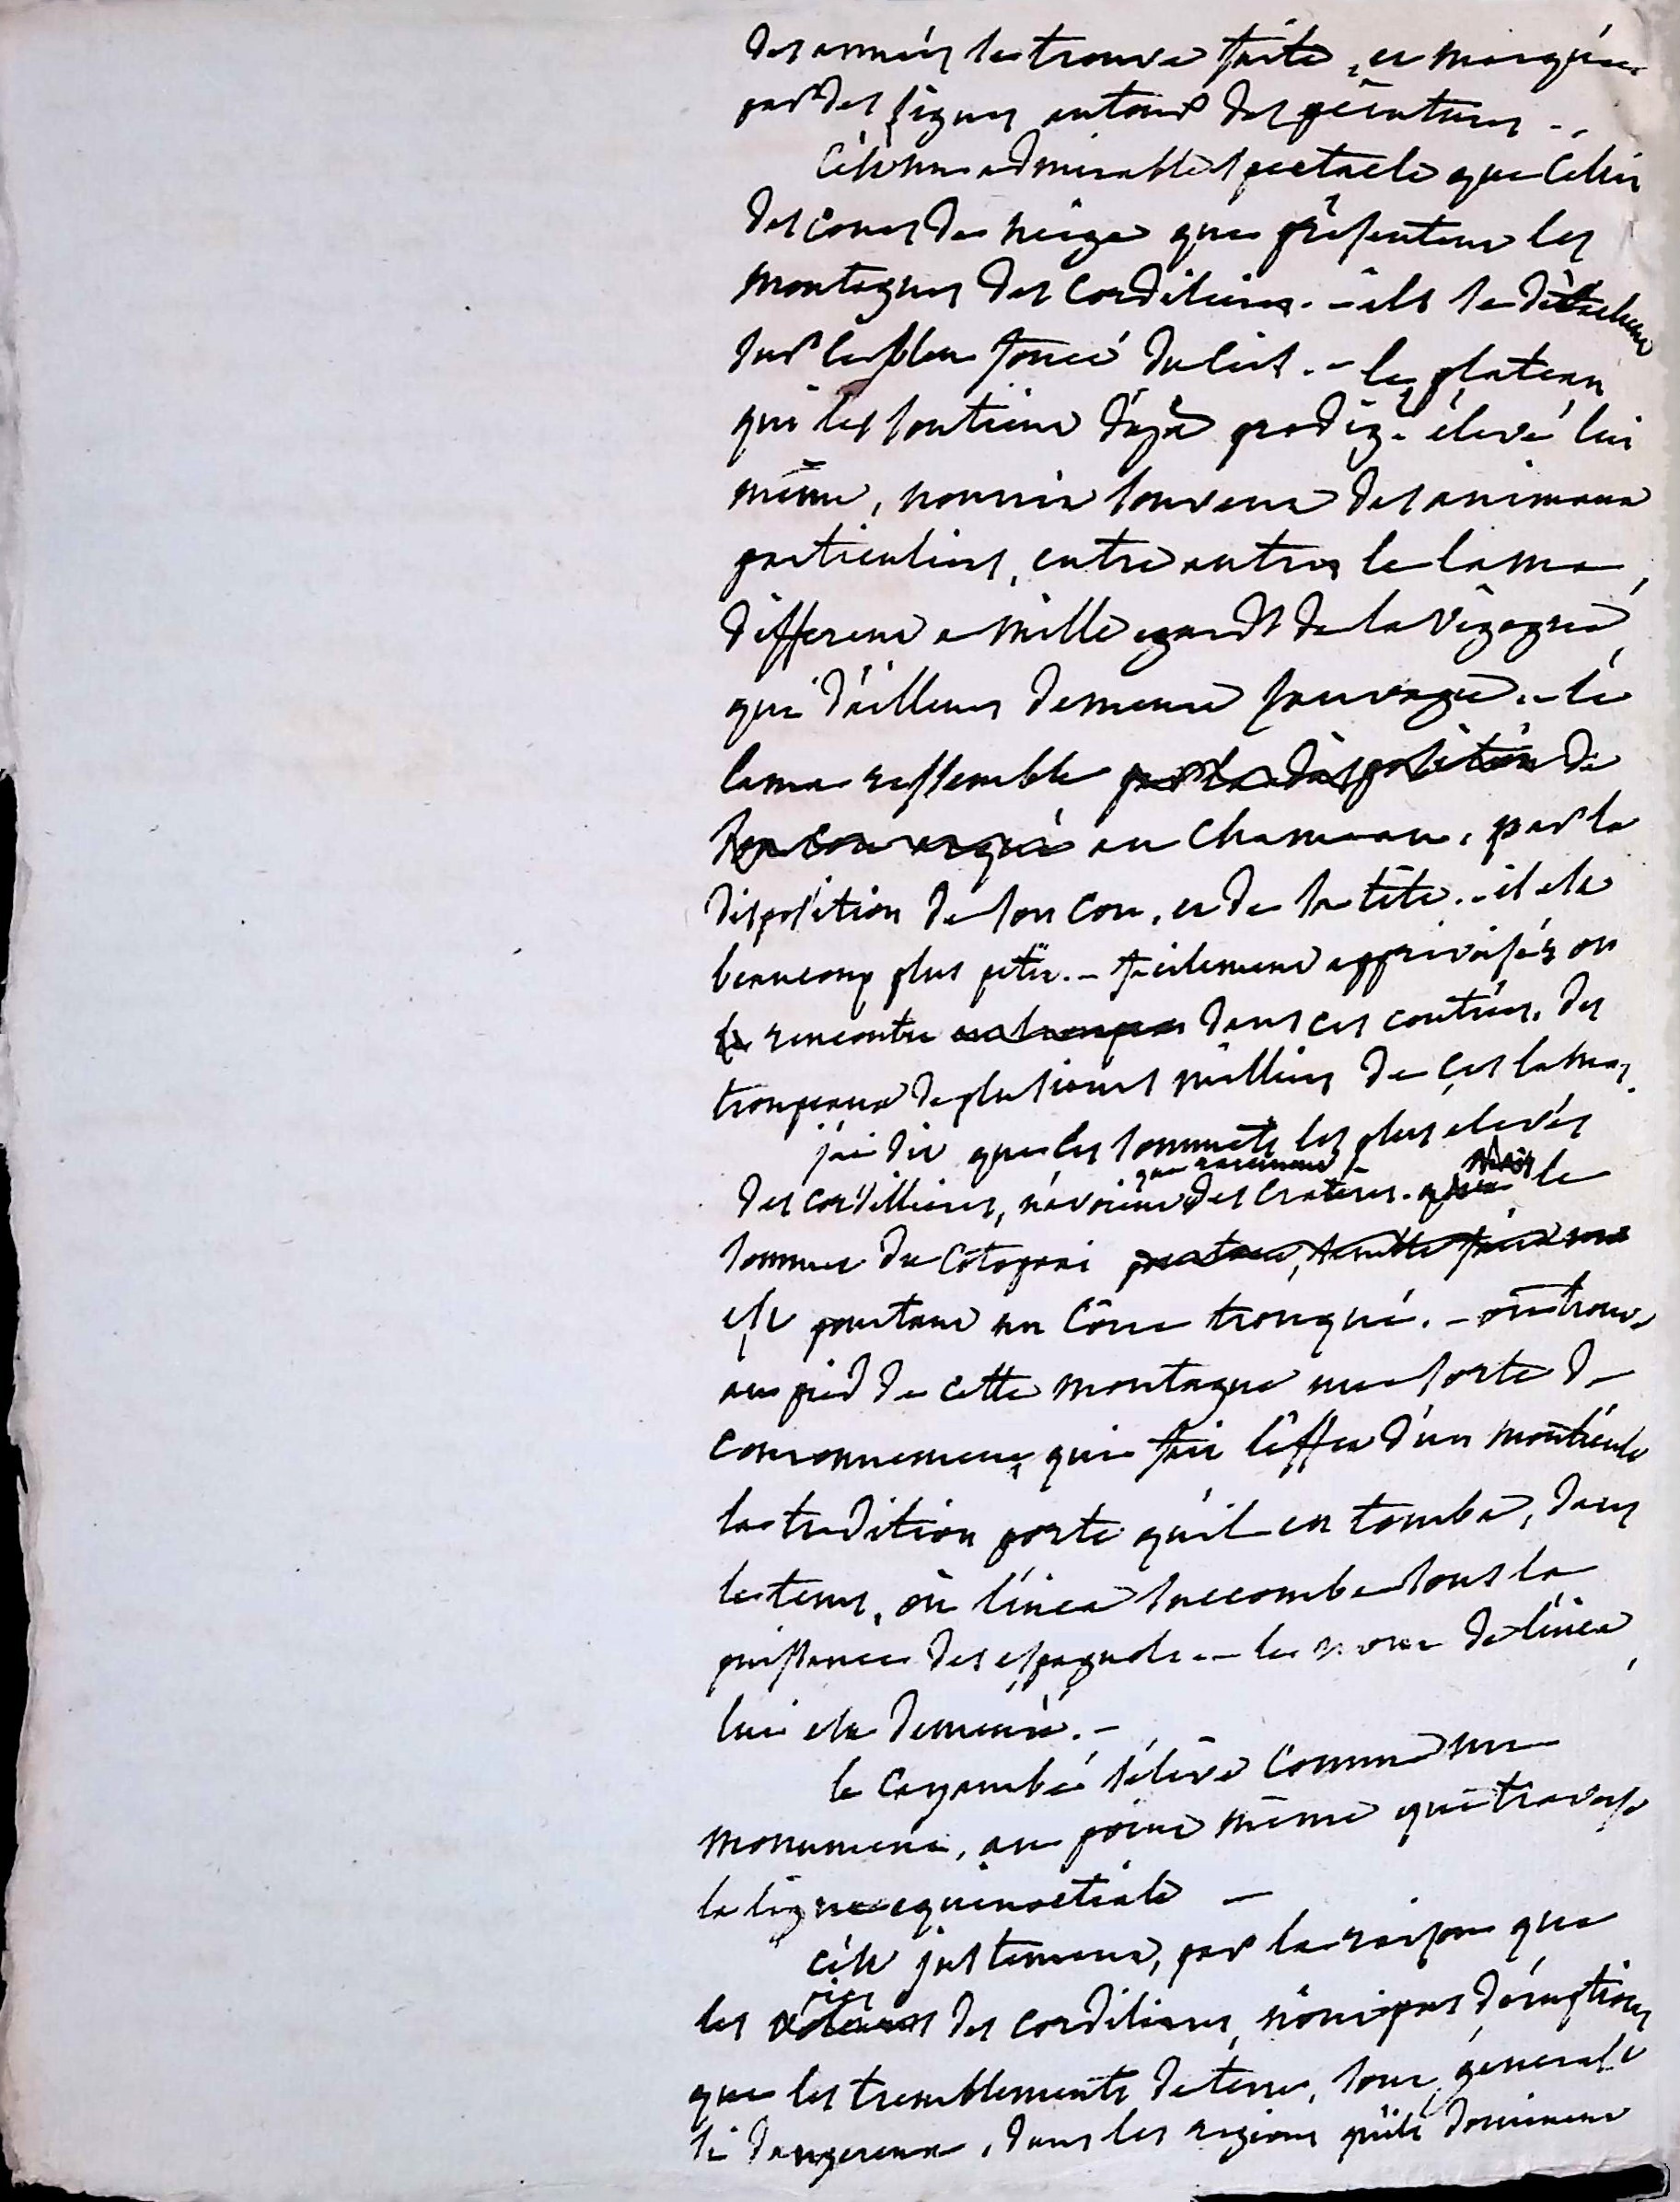 des années se trouve faite, et marquée
par des signes autour des peintures..
C'est un admirable spectacle que celui
des cones de neige que présentent les
montagnes des Cordilieres. - ils se détachent
sur le bleu foncé du ciel. - le plateau
qui les soutient déjà prodig.t élevé lui
même, nourrit souvent des animaux
particuliers, entre autres le lama,
different a mille egards de la vigogne,
qui d'ailleurs demeure sauvage. - le
lama ressemble par la disposition de
son cou arqué au chameau, par la
disposition de son cou, et de sa tête.. il est
beaucoup plus petit. - facilement apprivoisés on
rencontre en troupes dans ces contrées, des
troupeaux de plusieurs milliers de ces lamas.
j'ai dit que les sommets les plus elevés
des cordillieres, n'avoient que rarement des crateres. mais le
sommet du Cotopaxi pourtant, semble
est pourtant un cône tronqué. - on trouve
au pied de cette montagne une sorte de
couronnement, qui fait l'effet d'un monticule
la tradition porte qu'il en tomba, dans
le tems, où l'inca succomba sous la
puissance des espagnols. - le nom de l'inca,
lui est demeuré. -
le Cayambé s'élève comme un
monument, au point même que traverse
la ligne equinoctiale -
c'est justement, par la raison que
les pics des cordilieres, n'ont pas d'éruptions
que les tremblements de terre, sont général.t
si dangereux, dans les regions qu'ils dominent